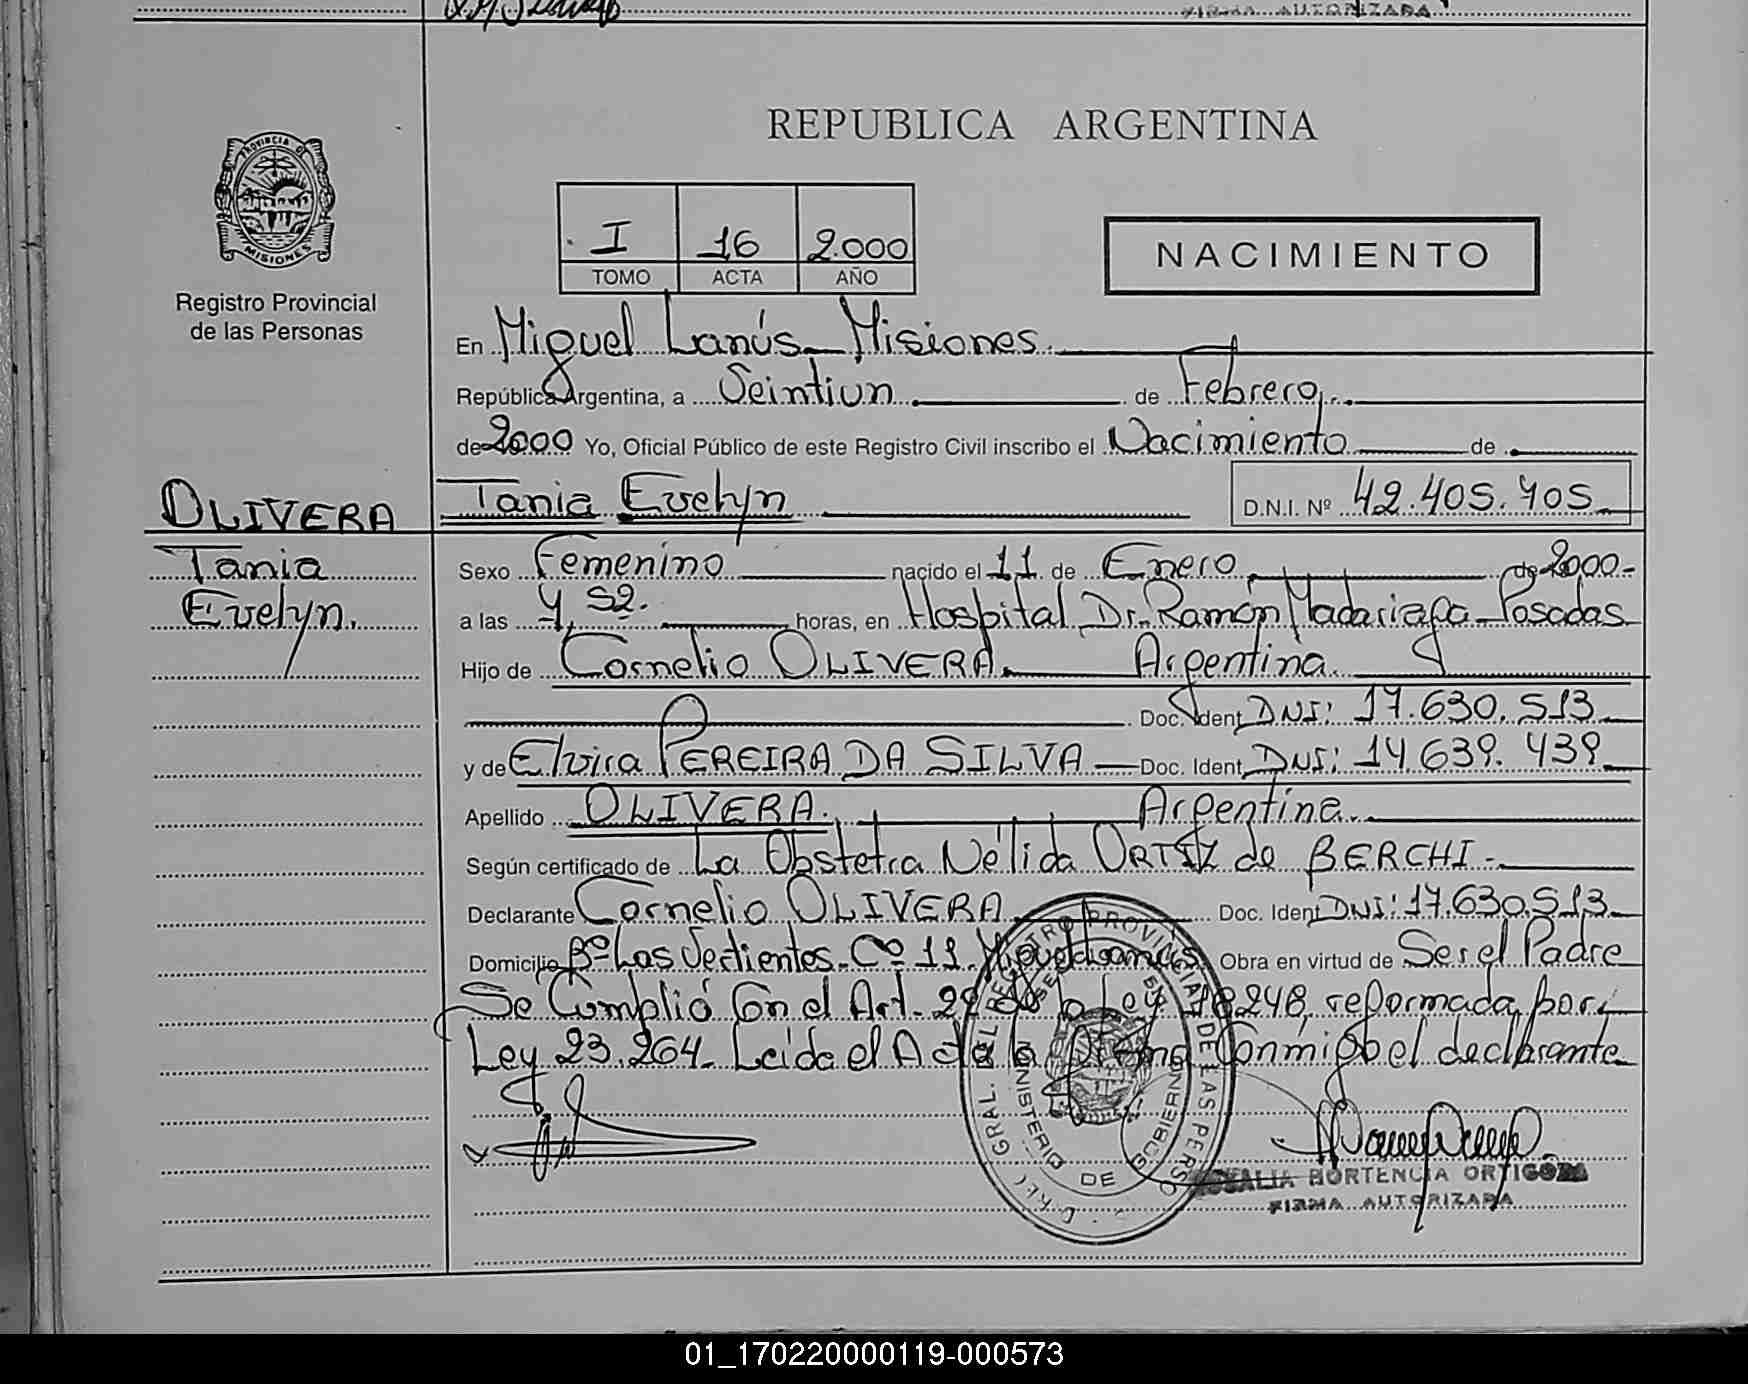 FIRMA AUTORIZADA
PROVINCIA DE
MISIONES
Registro Provincial
de las Personas
REPUBLICA ARGENTINA
I 16 2.000
TOMO ACTA AÑO
NACIMIENTO
En Miguel Lanús - Misiones.
República Argentina, a Veintiun de Febrero
de 2000 Yo, Oficial Público de este Registro Civil inscribo el Nacimiento de
OLIVERA Tania Evelyn D.N.I. Nº 42.405.705
Tania
Evelyn.
Sexo Femenino nacido el 11 de Enero de 2000-
a las 7,52. horas, en Hospital Dr. Ramón Madariaga - Posadas
Hijo de Cornelio OLIVERA. Argentina.
Doc. Ident. DNI: 17.630.513
y de Elvira PEREIRA DA SILVA — Doc. Ident. DNI: 14.639.439
Apellido OLIVERA. Argentina.
Según certificado de La Obstetra Nélida ORTIZ de BERCHI.-
Declarante Cornelio OLIVERA Doc. Ident. DNI: 17.630.513
Domicilio Bº Las Vertientes - Cº 11 Miguel Lanús Obra en virtud de Ser el Padre
Se Cumplió Con el Art. 29 de la Ley 18248, reformada por
Ley 23.264. Leída el Acta la Firma Conmigo el declarante
REGISTRO PROVINCIAL DE LAS PERSO
MINISTERIO DE GOBIERNO
ROSALIA HORTENCIA ORTIGOZA
FIRMA AUTORIZADA
01_170220000119-000573